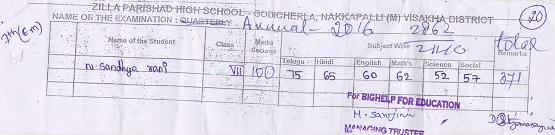 ZILLA PARISHAD HIGH SCHOOL - GODICHERLA, NAKKAPALLI (M) VISAKHA DISTRICT
20
NAME OF THE EXAMINATION : QUARTERLY Annual - 2016 2862
7th (E.M)
Name of the Student Class Marks Secured Subject Wise total Remarks
Telugu Hindi English Math's Science Social
N. Sandhya rani VII 100 75 65 60 62 52 57 371
For BIGHELP FOR EDUCATION
MANAGING TRUSTEE